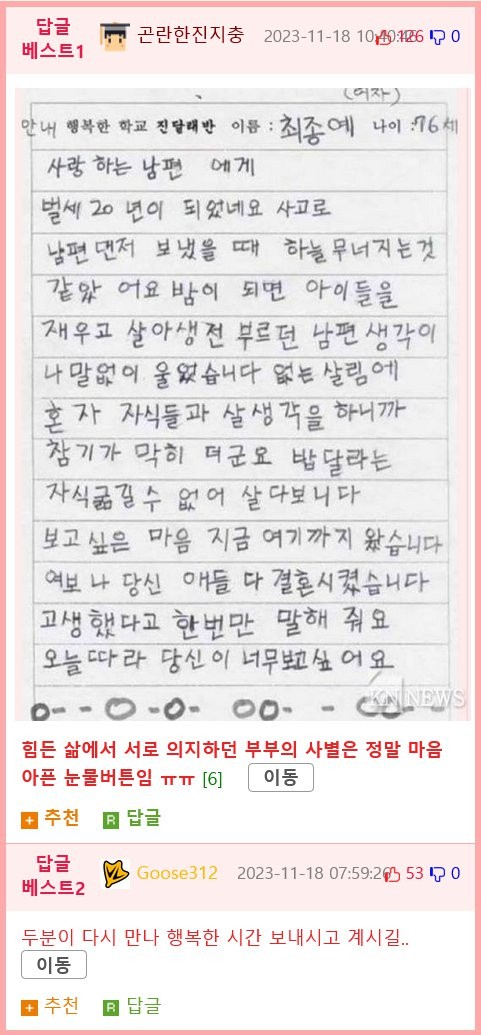 답글
베스트1
곤란한진지충
2023-11-18
126
0
(여자)
안내 행복한 학교 진달래반 이름 : 최종예 나이 : 76세
사랑 하는 남편 에게
벌세 20 년이 되었네요 사고로
남편 맨저 보냈을 때 하늘 무너지는것
같았 어요 밤이 되면 아이들을
재우고 살아생전 부르던 남편 생각이
나 말없이 울었습니다 없는 살림에
혼자 자식들과 살생각을 하니까
참기가 막히 더군요 밥달라는
자식굶길수 없어 살다보니다
보고싶은 마음 지금 여기까지 왔습니다
여보 나 당신 애들 다 결혼시켰습니다
고생했다고 한번만 말해 줘요
오늘따라 당신이 너무보고싶어요
KN NEWS
힘든 삶에서 서로 의지하던 부부의 사별은 정말 마음
아픈 눈물버튼임 ㅠㅠ [6] 이동
+ 추천 R 답글
답글
베스트2
Goose312
2023-11-18 07:59:26
53
0
두분이 다시 만나 행복한 시간 보내시고 계시길..
이동
+ 추천 R 답글